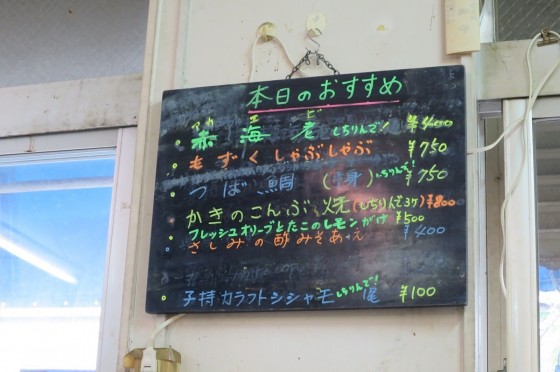 本日のおすすめ
アカ エビ
赤海老 しちりんで! ¥400
もずくしゃぶしゃぶ ¥750
つば鯛 (半身) しちりんで! ¥750
かきのこんぶ焼(しちりんで3ケ) ¥800
フレッシュオリーブとたこのレモンがけ ¥500
さしみの酢みそあえ ¥400
子持カラフトシシャモ しちりんで! 尾 ¥100